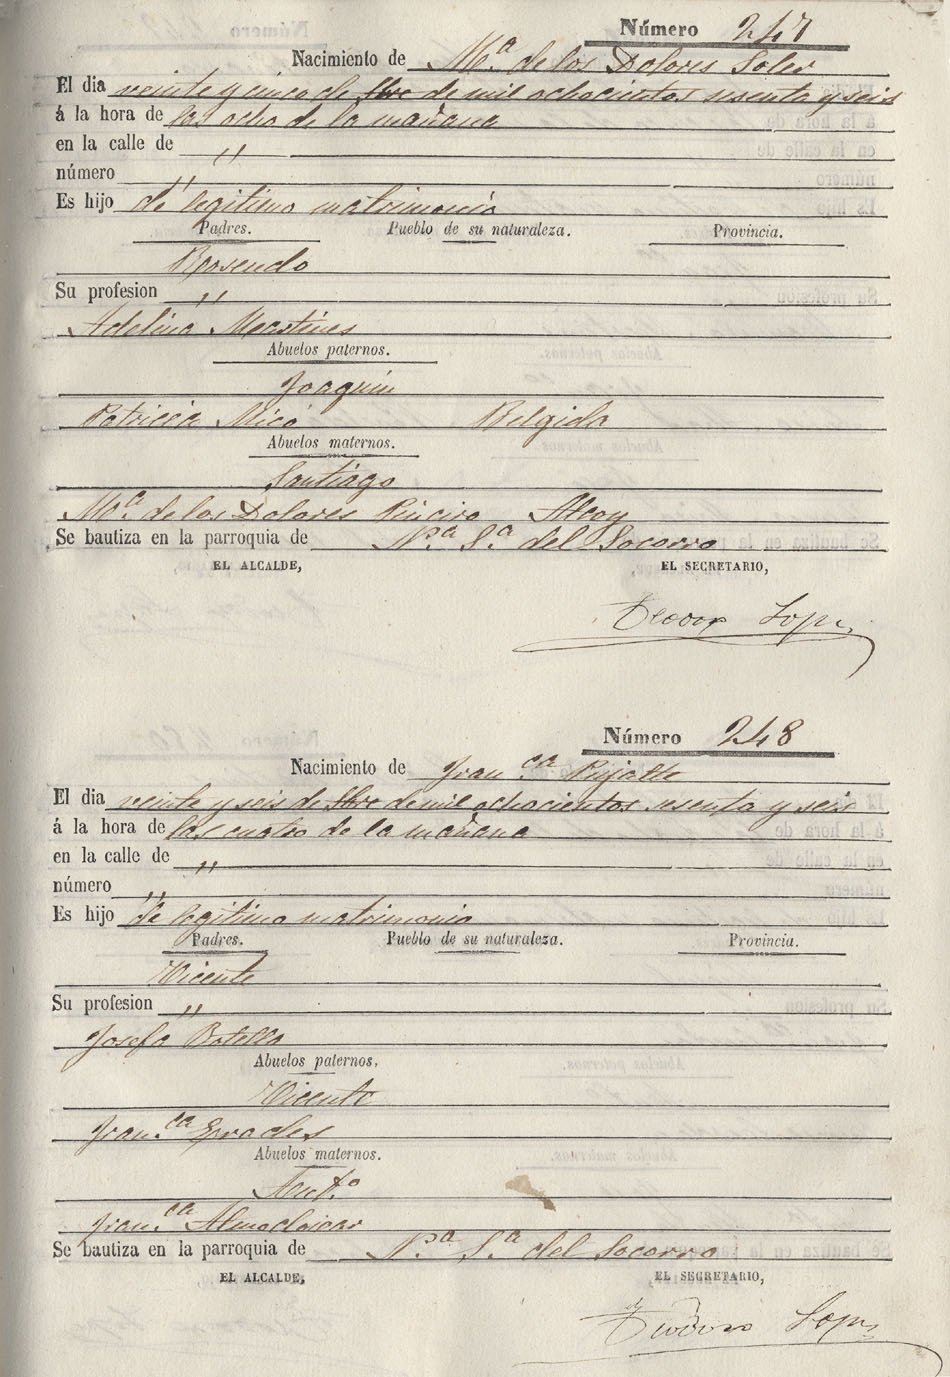 Número 247
Nacimiento de Mª. de los Dolores Soler
El dia veinte y cinco de 8bre de mil ochocientos sesenta y seis
á la hora de las ocho de la mañana
en la calle de "
número "
Es hijo de legitimo matrimonio
Padres. Pueblo de su naturaleza. Provincia.
Rosendo
Su profesion "
Adelina Martines
Abuelos paternos.
Joaquin
Patricia Micó Belgida
Abuelos maternos.
Santiago
Mª. de los Dolores Alcoy
Se bautiza en la parroquia de Nª. Sª. del Socorro
EL ALCALDE, EL SECRETARIO,
Número 248
Nacimiento de Fran.ca Pujalte
El dia veinte y seis de 8bre de mil ochocientos sesenta y seis
á la hora de las cuatro de la mañana
en la calle de "
número "
Es hijo de legitimo matrimonio
Padres. Pueblo de su naturaleza. Provincia.
Vicente
Su profesion "
Josefa Botella
Abuelos paternos.
Vicente
Fran.ca Erades
Abuelos maternos.
Ant.º
Fran.ca Almodoicar
Se bautiza en la parroquia de Nª. Sª. del Socorro
EL ALCALDE, EL SECRETARIO,
Teodoro Lopez